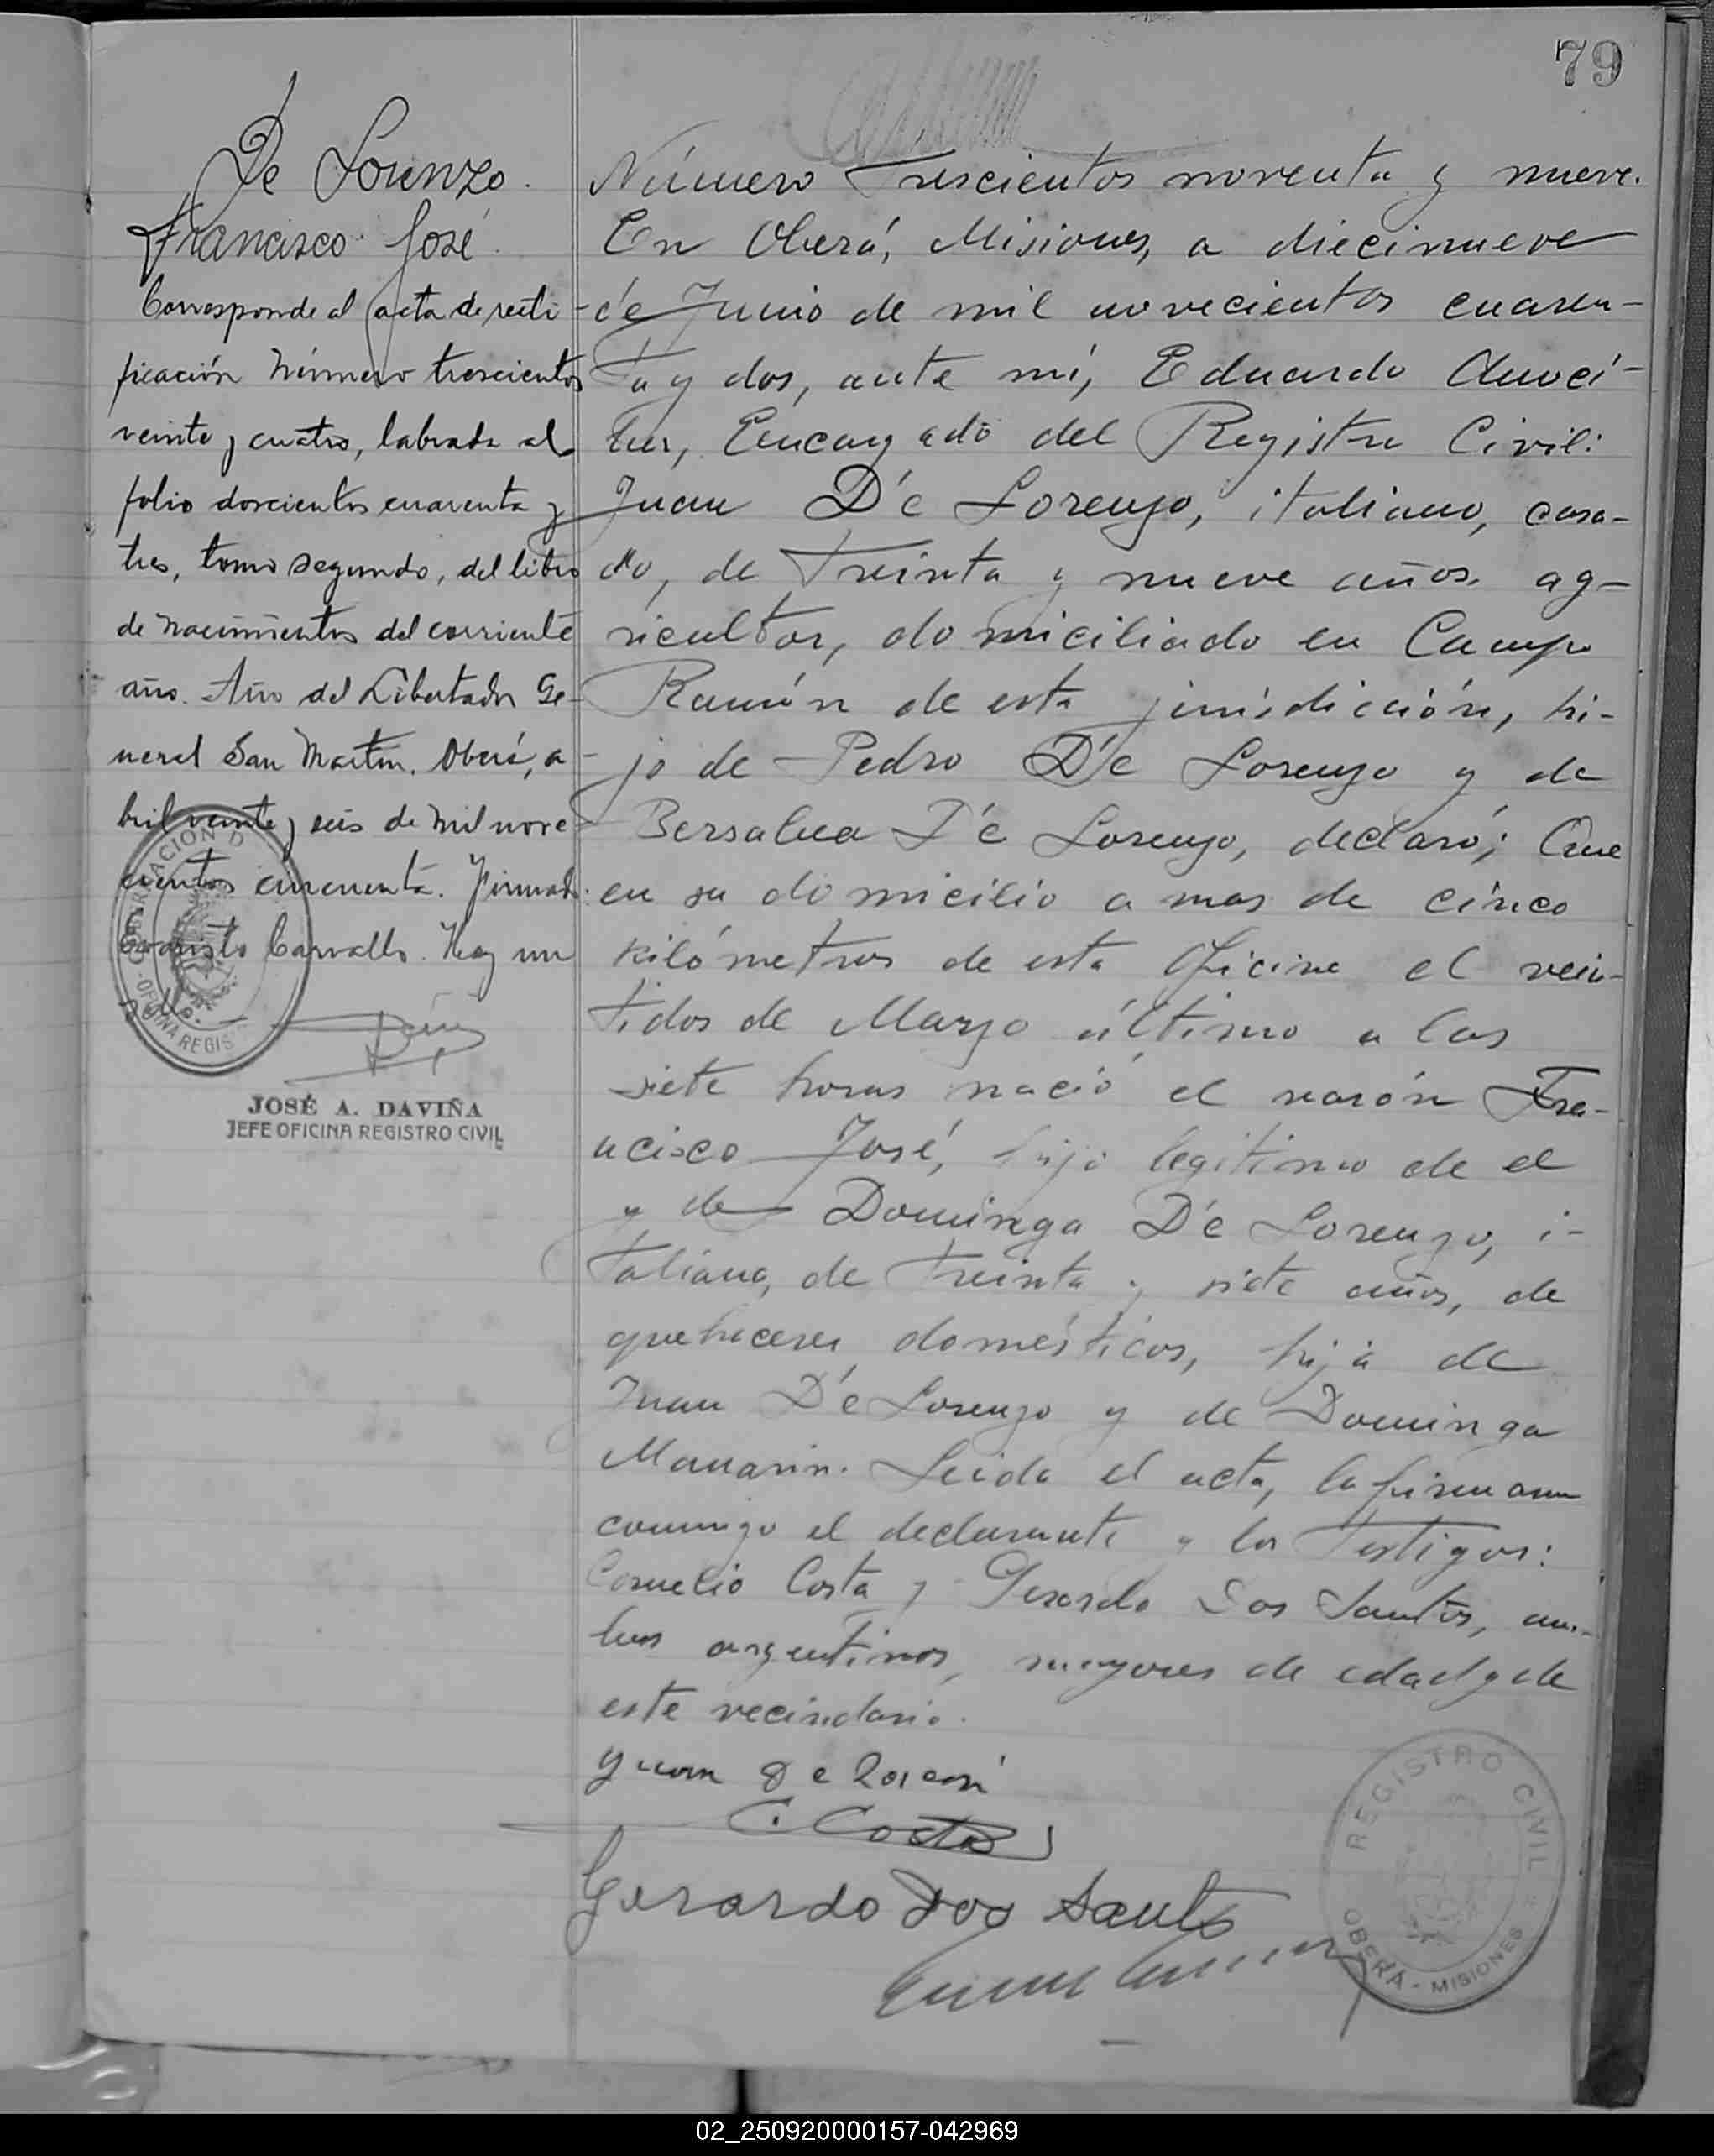 79
De Lorenzo.
Francisco José.
Corresponde al acta de recti-
ficación Número trescientos
veinte y cuatro, labrada al
folio doscientos cuarenta y
tres, tomo segundo, del libro
de nacimientos del corriente
año. Año del Libertador Ge-
neral San Martín. Oberá, a-
bril veinte y seis de mil nove-
cientos cincuenta. Firmado:
Evaristo Carvallo. Hay un
sello.
OFICINA REGIS
JOSÉ A. DAVIÑA
JEFE OFICINA REGISTRO CIVIL
Número Trescientos noventa y nueve.
En Oberá, Misiones, a diecinueve
de Junio de mil novecientos cuaren-
ta y dos, ante mí, Eduardo
Encargado del Registro Civil:
Juan D'e Lorenzo, italiano, casa-
do, de Treinta y nueve años, ag-
ricultor, domiciliado en Campo
Ramón de esta jurisdicción, hi-
jo de Pedro D'e Lorenzo y de
D'e Lorenzo, declaró; Que
en su domicilio a mas de cinco
kilómetros de esta Oficina el vein-
tidos de Marzo último a las
siete horas nació el varón Fra-
ncisco José, hijo legitimo de el
y de Dominga D'e Lorenzo, i-
taliana, de treinta y siete años, de
quehaceres domésticos, hija de
Juan D'e Lorenzo y de Dominga
Manarin. Leida el acta, la firman
conmigo el declarante y los Testigos:
Cornelio Costa y Gerardo Dos Santos, am-
bos argentinos, mayores de edad y de
este vecindario.
C. Costa
Gerardo Dos Santos
REGISTRO CIVIL
OBERÁ - MISIONES
02_250920000157-042969